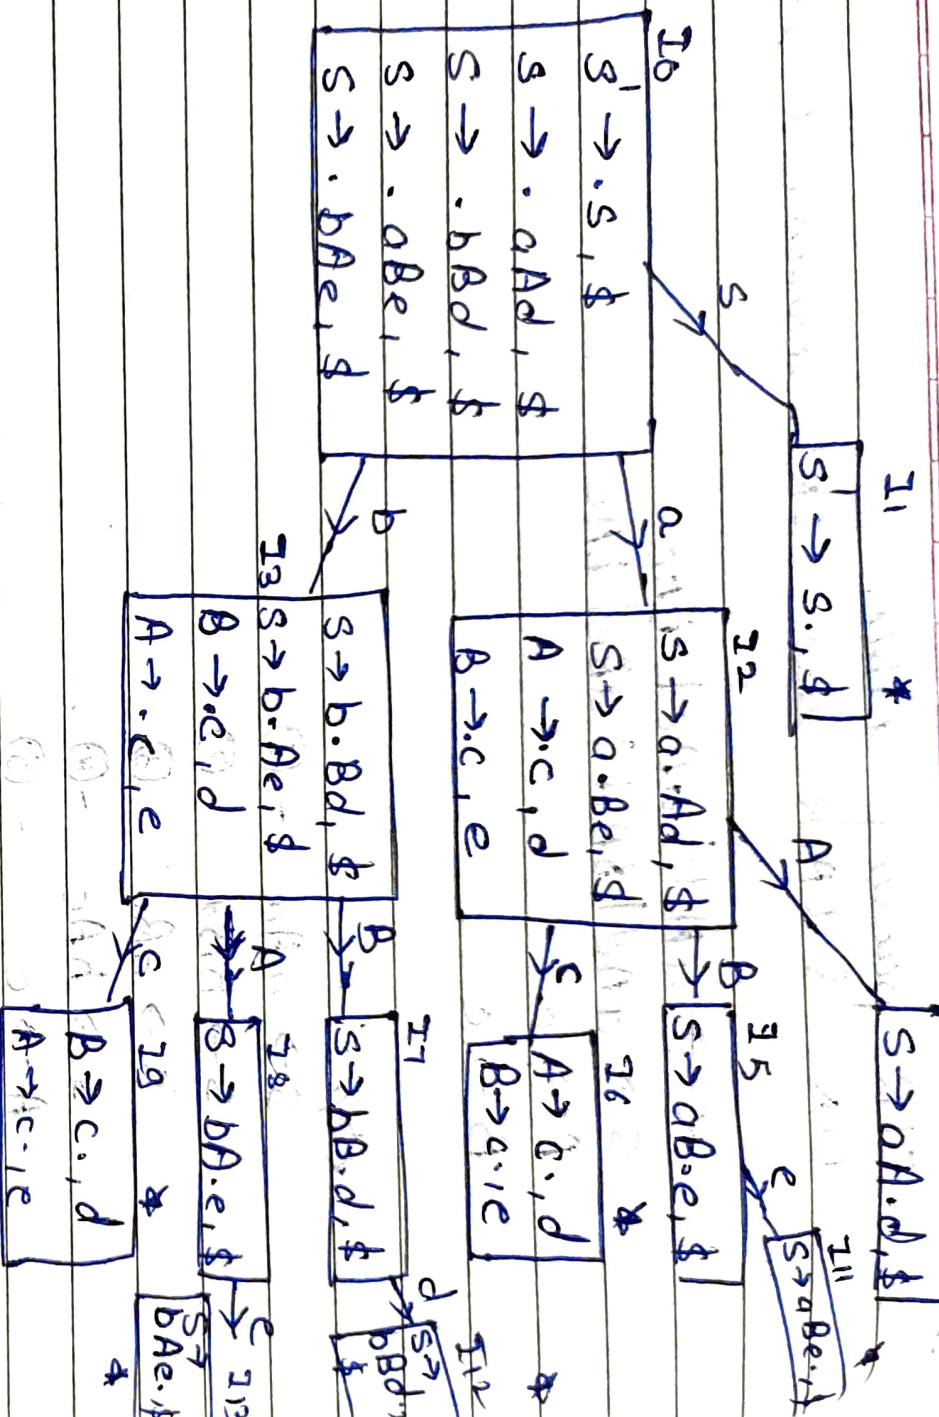 I0
S' → .S, $
S → .aAd, $
S → .bBd, $
S → .aBe, $
S → .bAe, $
S
I1
S' → S., $
*
a
I2
S → a.Ad, $
S → a.Be, $
A → .c, d
B → .c, e
b
I3
S → b.Bd, $
S → b.Ae, $
B → .c, d
A → .c, e
A
S → aA.d, $
B
I5
S → aB.e, $
e
I11
S → aBe.,
*
c
I6
A → c., d
B → c., e
*
B
I7
S → bB.d, $
d
I12
S →
bBd.,
$
*
A
I8
S → bA.e, $
e
I13
S →
bAe., $
*
c
I9
B → c., d
A → c., e
*